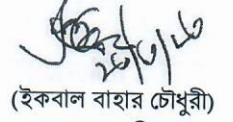 (ইকবাল বাহার চৌধুরী)